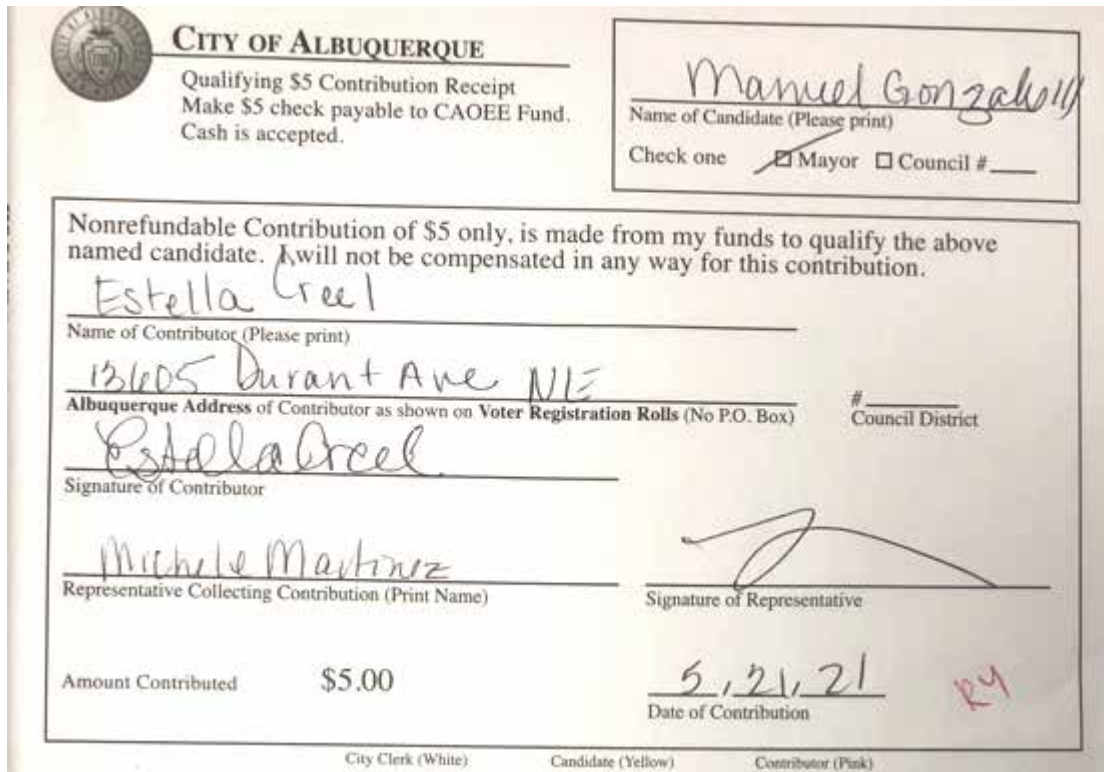 CITY OF ALBUQUERQUE
Qualifying $5 Contribution Receipt
Make $5 check payable to CAOEE Fund.
Cash is accepted.
Manuel Gonzales III
Name of Candidate (Please print)
Check one Mayor Council #
Nonrefundable Contribution of $5 only, is made from my funds to qualify the above
named candidate. I will not be compensated in any way for this contribution.
Estella Creel
Name of Contributor (Please print)
13605 Durant Ave NE
Albuquerque Address of Contributor as shown on Voter Registration Rolls (No P.O. Box)
#
Council District
Estella Creel
Signature of Contributor
Michele Martinez
Representative Collecting Contribution (Print Name)
Signature of Representative
Amount Contributed $5.00
5, 21, 21
Date of Contribution
R4
City Clerk (White) Candidate (Yellow) Contributor (Pink)